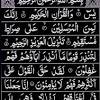 بِسْمِ اللَّهِ الرَّحْمَٰنِ الرَّحِيمِ
يس وَالْقُرْآنِ الْحَكِيمِ إِنَّكَ
لَمِنَ الْمُرْسَلِينَ عَلَىٰ صِرَاطٍ
مُسْتَقِيمٍ تَنْزِيلَ الْعَزِيزِ الرَّحِيمِ
لِتُنْذِرَ قَوْمًا مَا أُنْذِرَ آبَاؤُهُمْ فَهُمْ
غَافِلُونَ لَقَدْ حَقَّ الْقَوْلُ عَلَىٰ